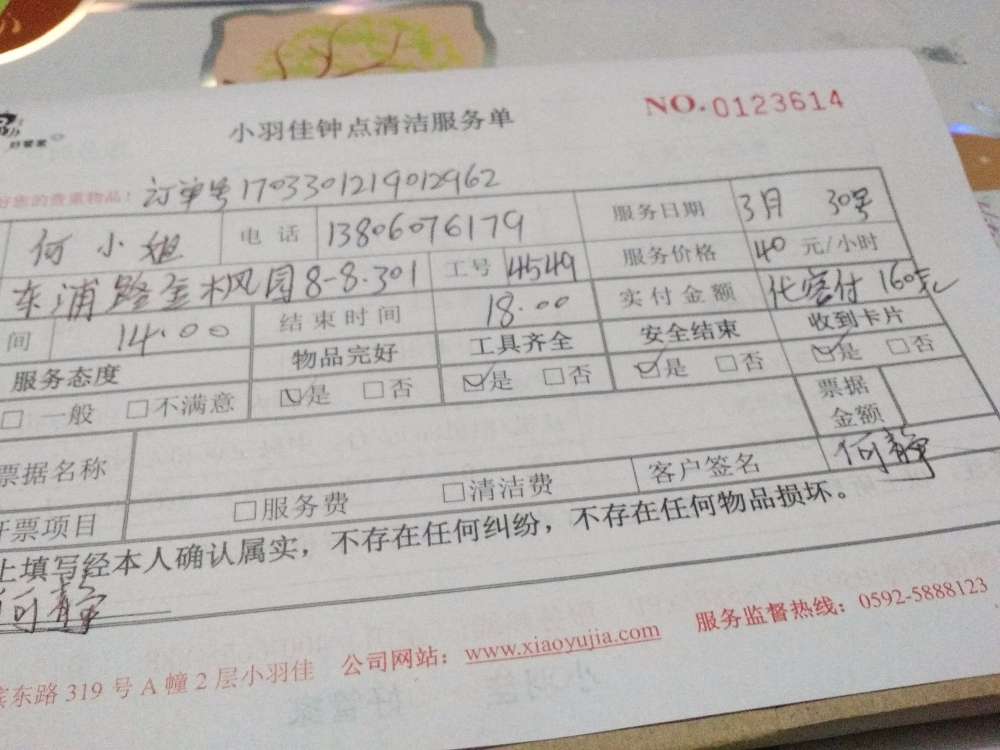 好管家
小羽佳钟点清洁服务单
NO.0123614
好您的贵重物品! 订单号170330121901 2962
何小姐 电话 13806076179 服务日期 3月 30号
东浦路金枫园8-8.301 工号 4549 服务价格 40元/小时
间 14.00 结束时间 18.00 实付金额 代客付160元
服务态度 物品完好 工具齐全 安全结束 收到卡片
□一般 □不满意 ☑是 □否 ☑是 □否 ☑是 □否 ☑是 □否
票据名称 票据金额
开票项目 □服务费 □清洁费 客户签名 何静
上填写经本人确认属实，不存在任何纠纷，不存在任何物品损坏。
何静
滨东路319号A幢2层小羽佳 公司网站：www.xiaoyujia.com 服务监督热线：0592-5888123